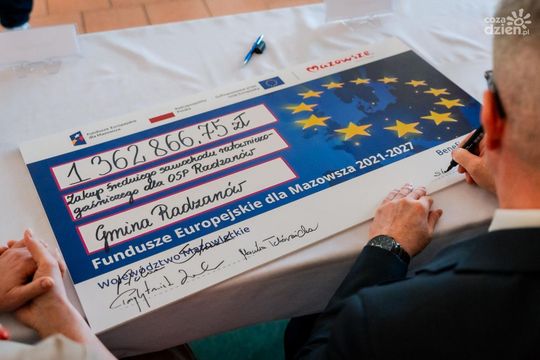 cozadzien.pl
mazowsze.
Fundusze Europejskie
dla Mazowsza
Rzeczpospolita
Polska
1 362 866,75 zł
Zakup średniego samochodu ratowniczo-
gaśniczego dla OSP Radzanów
Gmina Radzanów
Fundusze Europejskie dla Mazowsza 2021-2027
Województwo Mazowieckie